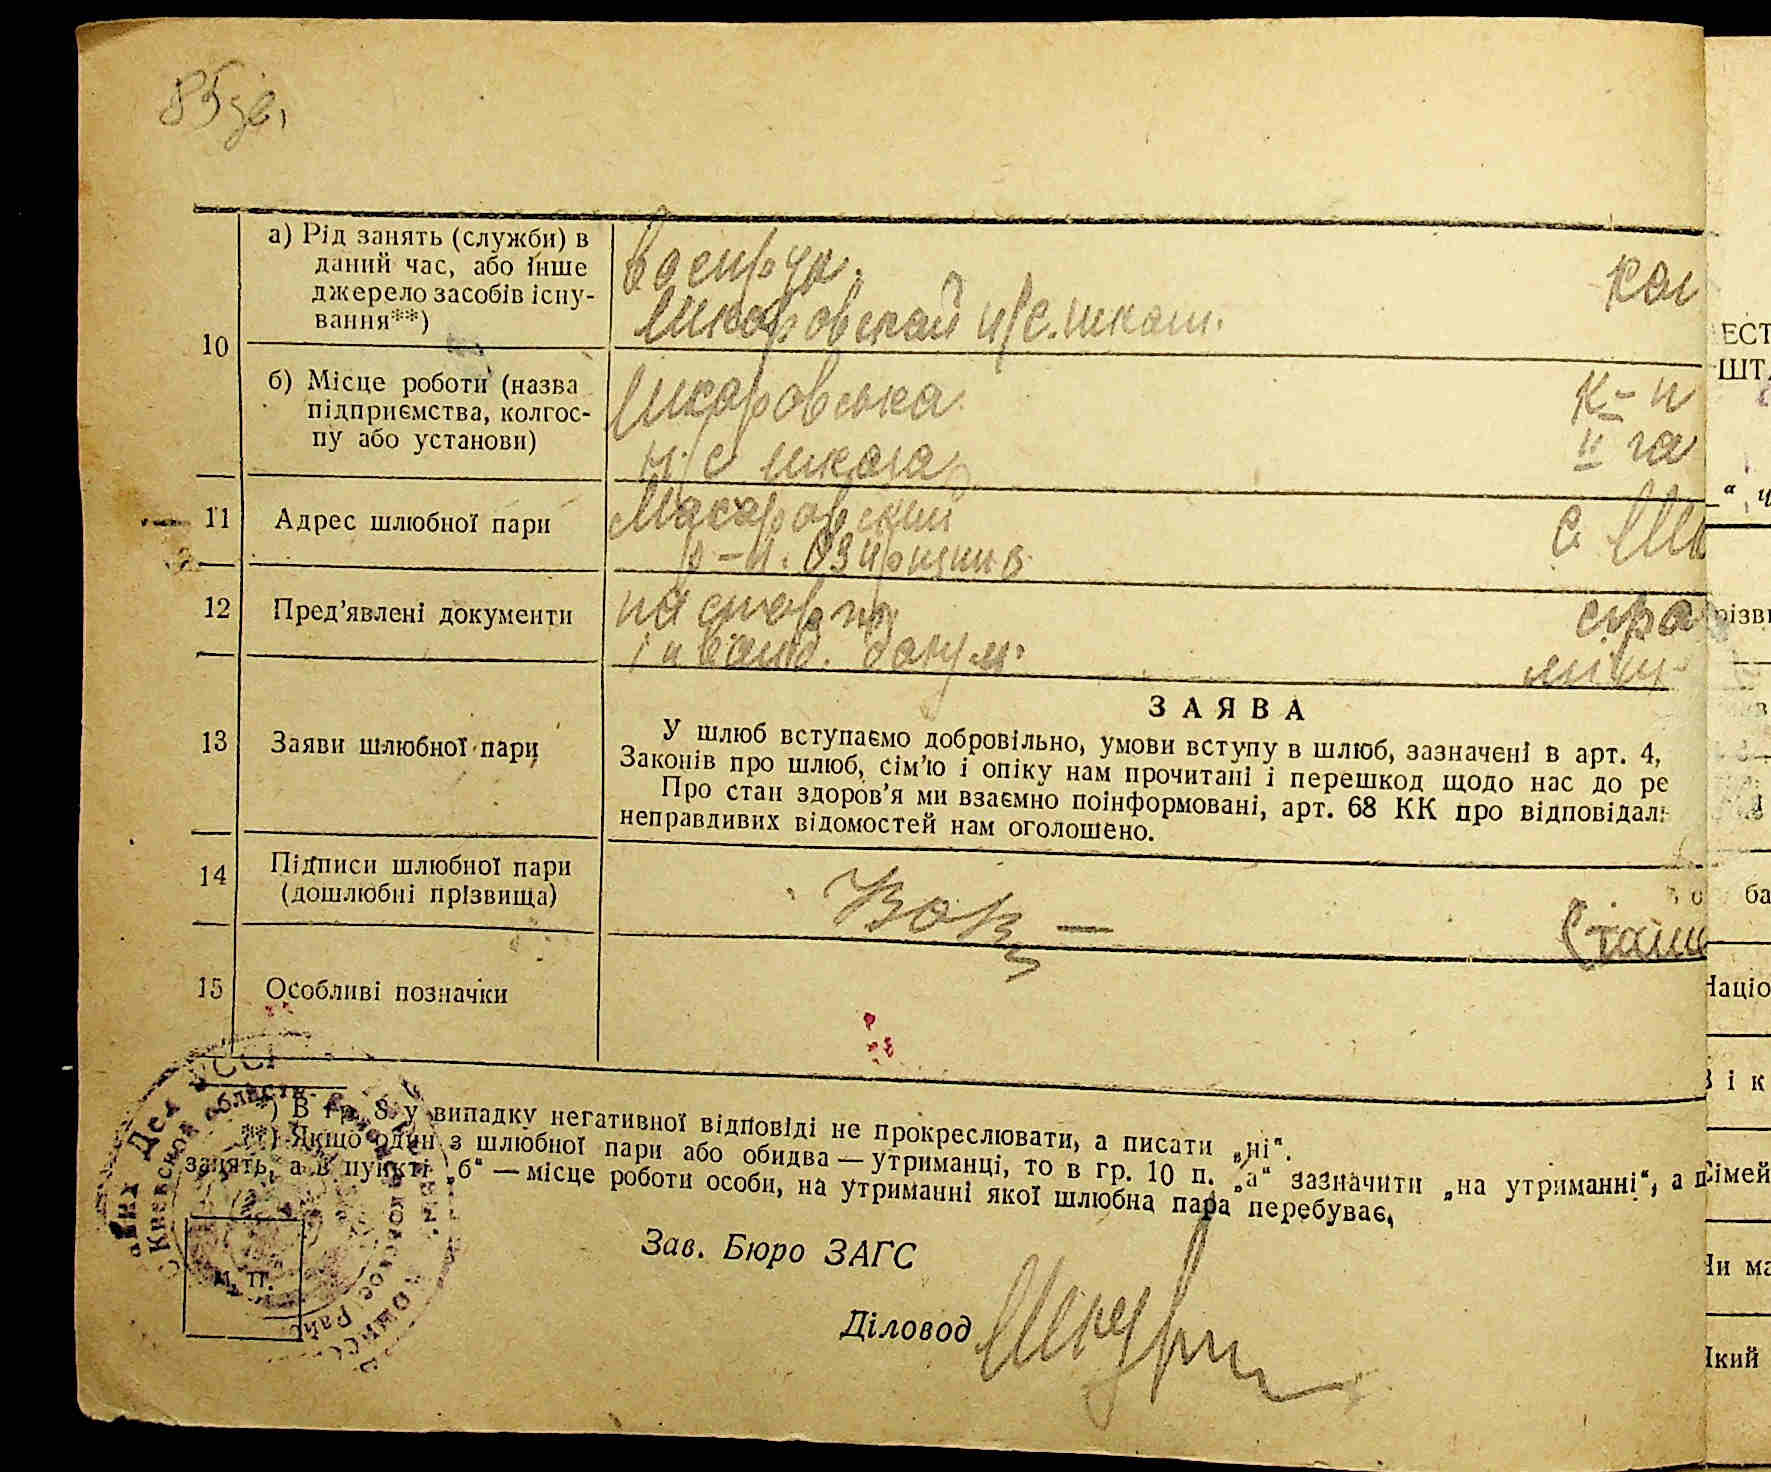 85
а) Рід занять (служби) в
даний час, або інше
джерело засобів існу-
вання**)
10
Шкаровской н/с. школ.
кол
б) Місце роботи (назва
підприємства, колгос-
пу або установи)
Шкаровська
н/с школа
к-п
11
Адрес шлюбної пари
Макаровский
р-н.
с.
12
Пред’явлені документи
паспорт
докум.
13
Заяви шлюбної пари
ЗАЯВА
У шлюб вступаємо добровільно, умови вступу в шлюб, зазначені в арт. 4,
Законів про шлюб, сім’ю і опіку нам прочитані і перешкод щодо нас до ре
Про стан здоров’я ми взаємно поінформовані, арт. 68 КК про відповідал
неправдивих відомостей нам оголошено.
14
Підписи шлюбної пари
(дошлюбні прізвища)
Сташ
15
Особливі позначки
*) В гр. 8 у випадку негативної відповіді не прокреслювати, а писати „ні“.
**) Якщо один з шлюбної пари або обидва — утриманці, то в гр. 10 п. „а“ зазначити „на утриманні“, а п
занять, а в пункті „б“ — місце роботи особи, на утриманні якої шлюбна пара перебуває,
Зав. Бюро ЗАГС
М. П.
Діловод
Киевской области
ЕСТ
ШТ
різви
ба
Націо
Вік
Сімей
Чи ма
Який